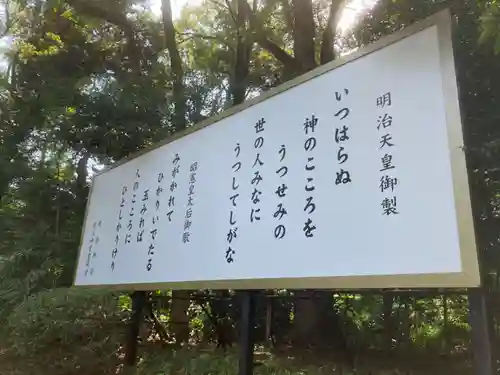 明治天皇御製
いつはらぬ
神のこころを
うつせみの
世の人みなに
うつしてしがな
昭憲皇太后御歌
みがかれて
ひかりいでたる
玉みれば
人のこころに
ひとしかりけり